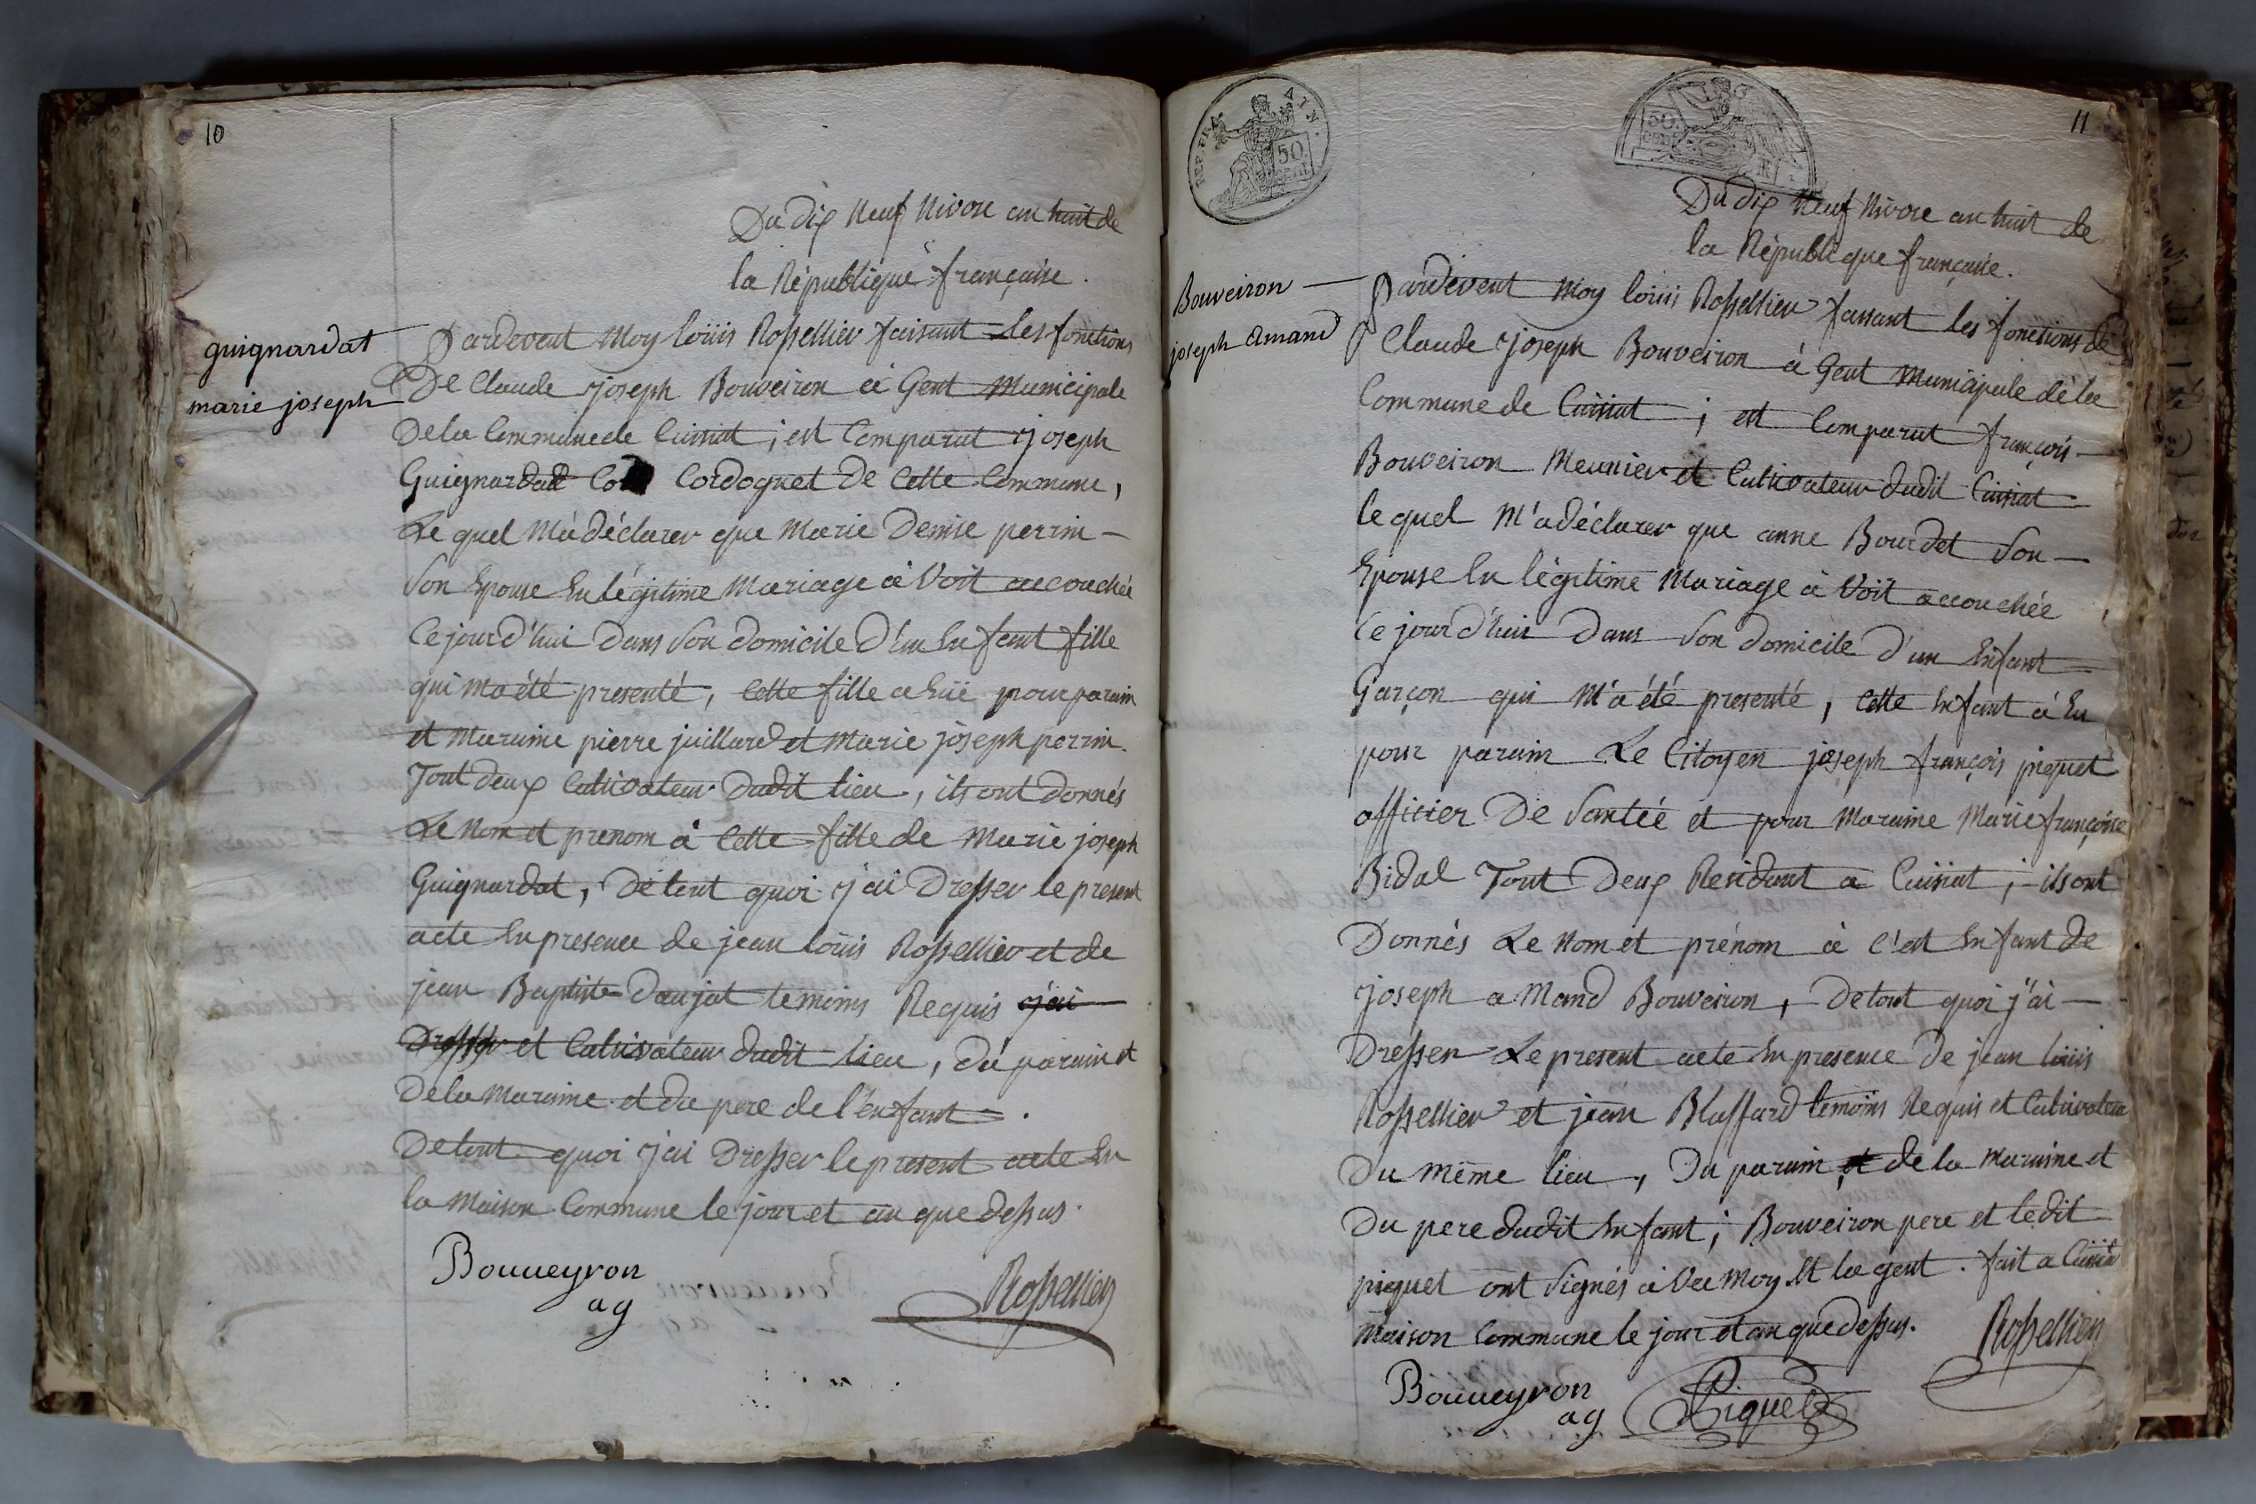 10
Du dix neuf Nivose an huit de
la République française.
guignardat
marie joseph
Pardevent Moy loüis Rossellier faisant les fonctions
De Claude joseph Bouveiron à Gent Municipale
De la Commune de Cuisiat ; est Comparut joseph
Guignardat Cordognet De Cette Commune,
Le quel M'a déclarer que Marie Denise perrin
Son Epouse En légitime Mariage à Voit accouchée
Ce jourd'hui Dans Son domicile D'un Enfant fille
qui ma été presenté, Cette fille a Eüe pour parain
et Maraine pierre juillard et Marie joseph perrin.
Tout deux Cultivateur Dudit lieu, ils ont donnés
Le Nom et prenom à Cette fille de Marie joseph
Guignardat, De tout quoi j'ai Dresser le present
acte En presence de jean loüis Rossellier et de
jean Baptiste daujat temoins Requis j'ai
Dresser et Cultivateur dudit lieu, du parain et
De la Maraine et du pere de l'enfant.
De tout quoi j'ai Dresser le present acte En
la Maison Commune le jour et an que dessus.
Bouueyron
ag
Rossellier
REP. FRA.
AIN.
50
CENT.
50
CENT
11
Du dix Neuf Nivose an huit de
la République française.
Bouveiron
joseph Amand
Pardevent Moy loüis Rossellier faisant les fonctions de
Claude joseph Bouveiron à Gent Municipale de la
Commune de Cuisiat ; est Comparut françois
Bouveiron Meunier et Cultivateur dudit Cuisiat
le quel M'a déclarer que anne Bourdet Son
Epouse En légitime Mariage à Voit accouchée
Ce jourd'hui Dans Son domicile D'un Enfant
Garçon qui M'a été presenté, Cette Enfant à Eu
pour parain Le Citoyen joseph françois piquet
officier De Santée et pour Maraine Marie françoise
Bidal Tout Deux Residant a Cuisiat ; ils ont
Donnés Le Nom et prénom à C'est Enfant de
joseph a Mand Bouveiron, De tout quoi j'ai
Dresser Le present acte En presence de jean loüis
Rossellier et jean Blassard temoins Requis et Cultivateur
Du même lieu, Du parain et de la Maraine et
Du pere dudit Enfant ; Bouveiron pere et ledit
piquet ont Signés à Vec Moy Et la gent. fait a Cuisiat
Maison Commune le jour et an que dessus.
Rossellier
Bouueyron
ag
Piquet